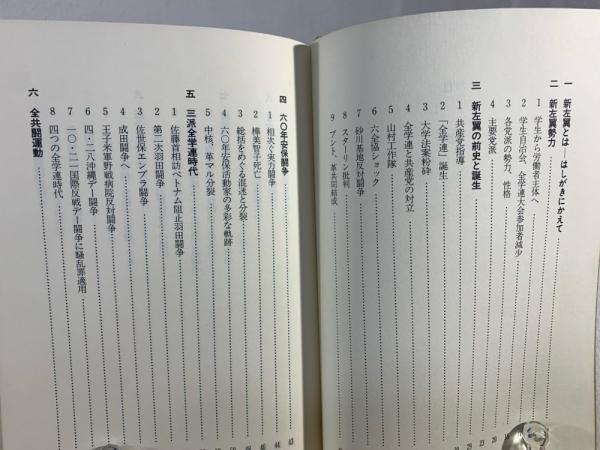 一 新左翼とは——はしがきにかえて
二 新左翼勢力
1 学生から労働者主体へ
2 学生自治会、全学連大会参加者減少
3 各党派の勢力、性格
4 主要党派
三 新左翼の前史と誕生
1 共産党指導
2 「全学連」誕生
3 大学法案粉砕
4 全学連と共産党の対立
5 山村工作隊
6 六全協ショック
7 砂川基地反対闘争
8 スターリン批判
9 ブント、革共同結成
四 六〇年安保闘争
1 相次ぐ実力闘争
2 樺美智子死亡
3 総括をめぐる混迷と分裂
4 六〇年安保活動家の多彩な軌跡
5 中核、革マル分裂
五 三派全学連時代
1 佐藤首相訪ベトナム阻止羽田闘争
2 第二次羽田闘争
3 佐世保エンプラ闘争
4 成田闘争へ
5 王子米軍野戦病院反対闘争
6 四・二八沖縄デー闘争
7 一〇・二一国際反戦デー闘争に騒乱罪適用
8 四つの全学連時代
六 全共闘運動